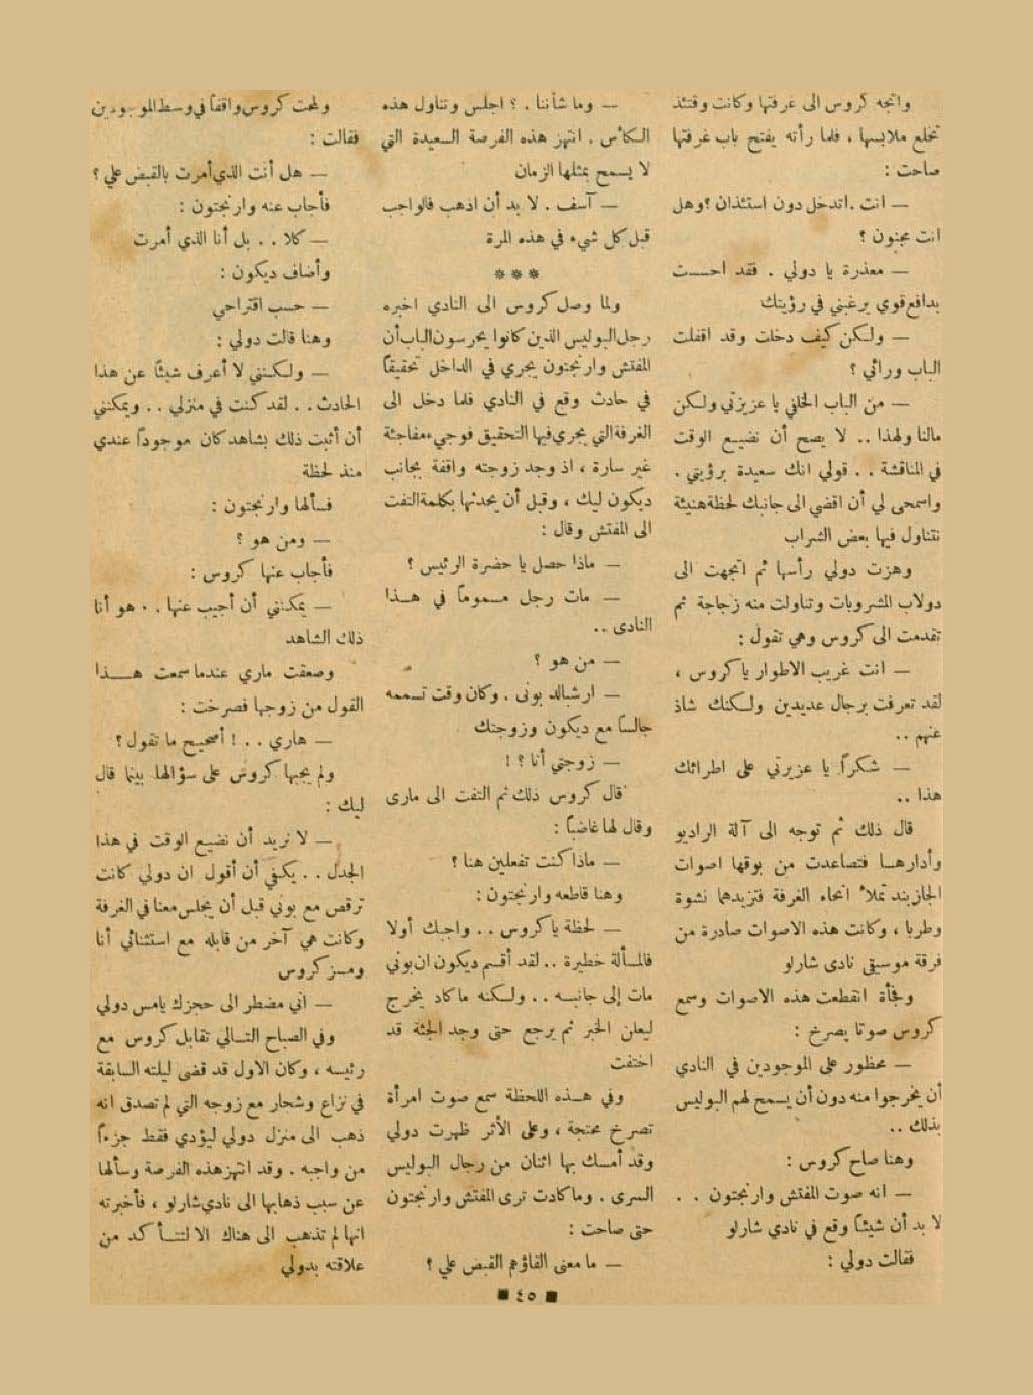 واتجه كروس الى غرفتها وكانت وقتئذ
تخلع ملابسها ، فلما رأته يفتح باب غرفتها
صاحت :
— انت . اتدخل دون استئذان ؟ وهل
انت مجنون ؟
— معذرة يا دولي . فقد احست
بدافع قوي يرغبني في رؤيتك
— ولكن كيف دخلت وقد اقفلت
الباب ورائي ؟
— من الباب الخلفي يا عزيزتي ولكن
مالنا ولهذا .. لا يصح أن نضيع الوقت
في المناقشة . . قولي انك سعيدة برؤيتي .
واسمحى لي أن اقضي الى جانبك لحظة هنيئة
نتناول فيها بعض الشراب
وهزت دولي رأسها ثم اتجهت الى
دولاب المشروبات وتناولت منه زجاجة ثم
تقدمت الى كروس وهي تقول :
— انت غريب الاطوار يا كروس ،
لقد تعرفت برجال عديدين ولكنك شاذ
عنهم ..
— شكراً يا عزيزتي على اطرائك
هذا ..
قال ذلك ثم توجه الى آلة الراديو
وأدارها فتصاعدت من بوقها اصوات
الجازبند تملأ انحاء الغرفة فتزيدهما نشوة
وطربا ، وكانت هذه الاصوات صادرة من
فرقة موسيقى نادى شارلو
وفجأة انقطعت هذه الاصوات وسمع
كروس صوتا يصرخ :
— محظور على الموجودين في النادي
أن يخرجوا منه دون أن يسمح لهم البوليس
بذلك ..
وهنا صاح كروس :
— انه صوت المفتش وارنجتون . .
لا بد أن شيئاً وقع في نادي شارلو
فقالت دولي :
— وما شأننا . ؟ اجلس وتناول هذه
الكأس . انتهز هذه الفرصة السعيدة التي
لا يسمح بمثلها الزمان
— آسف . لا بد أن اذهب فالواجب
قبل كل شيء في هذه المرة
***
ولما وصل كروس الى النادي اخبره
رجل البوليس الذين كانوا يحرسون الباب أن
المفتش وارنجتون يجري في الداخل تحقيقاً
في حادث وقع في النادي فلما دخل الى
الغرفة التي يجري فيها التحقيق فوجيء مفاجئة
غير سارة ، اذ وجد زوجته واقفة بجانب
ديكون ليك ، وقبل أن يحدثها بكلمة التفت
الى المفتش وقال :
— ماذا حصل يا حضرة الرئيس ؟
— مات رجل مسموماً في هذا
النادى ..
— من هو ؟
— ارشبالد بونى . وكان وقت تسممه
جالساً مع ديكون وزوجتك
— زوجتي أنا ؟ !
قال كروس ذلك ثم التفت الى مارى
وقال لها غاضباً :
— ماذا كنت تفعلين هنا ؟
وهنا قاطعه وارنجتون :
— لحظة يا كروس . . واجبك أولا
فالمسألة خطيرة .. لقد أقسم ديكون ان بوني
مات إلى جانبه . . ولكنه ما كاد يخرج
ليعلن الخبر ثم يرجع حتى وجد الجثة قد
اختفت
وفي هذه اللحظة سمع صوت امرأة
تصرخ محتجة ، وعلى الأثر ظهرت دولي
وقد أمسك بها اثنان من رجال البوليس
السرى . وما كادت ترى المفتش وارنجتون
حتى صاحت :
— ما معنى القاؤكم القبض علي ؟
ولمحت كروس واقفاً في وسط الموجودين
فقالت :
— هل أنت الذي أمرت بالقبض علي ؟
فأجاب عنه وارنجتون :
— كلا . . بل أنا الذي أمرت
وأضاف ديكون :
— حسب اقتراحي
وهنا قالت دولي :
— ولكنني لا أعرف شيئاً عن هذا
الحادث . . لقد كنت في منزلي . . ويمكنني
أن أثبت ذلك بشاهد كان موجوداً عندي
منذ لحظة
فسألها وارنجتون :
— ومن هو ؟
فأجاب عنها كروس :
— يمكنني أن أجيب عنها . . هو أنا
ذلك الشاهد
وصعقت ماري عندما سمعت هذا
القول من زوجها فصرخت :
— هاري . . ! أصحيح ما تقول ؟
ولم يجبها كروس على سؤالها بينما قال
ليك :
— لا نريد أن نضيع الوقت في هذا
الجدل . . يكفي أن أقول ان دولي كانت
ترقص مع بوني قبل أن يجلس معنا في الغرفة
وكانت هي آخر من قابله مع استثنائي أنا
ومسز كروس
— اني مضطر الى حجزك يامس دولي
وفي الصباح التالي تقابل كروس مع
رئيسه ، وكان الاول قد قضى ليلته السابقة
في نزاع وشحار مع زوجه التي لم تصدق انه
ذهب الى منزل دولي ليؤدي فقط جزءاً
من واجبه . وقد انتهز هذه الفرصة وسألها
عن سبب ذهابها الى نادي شارلو ، فأخبرته
انها لم تذهب الى هناك الا لتتأكد من
علاقته بدولي
٤٥